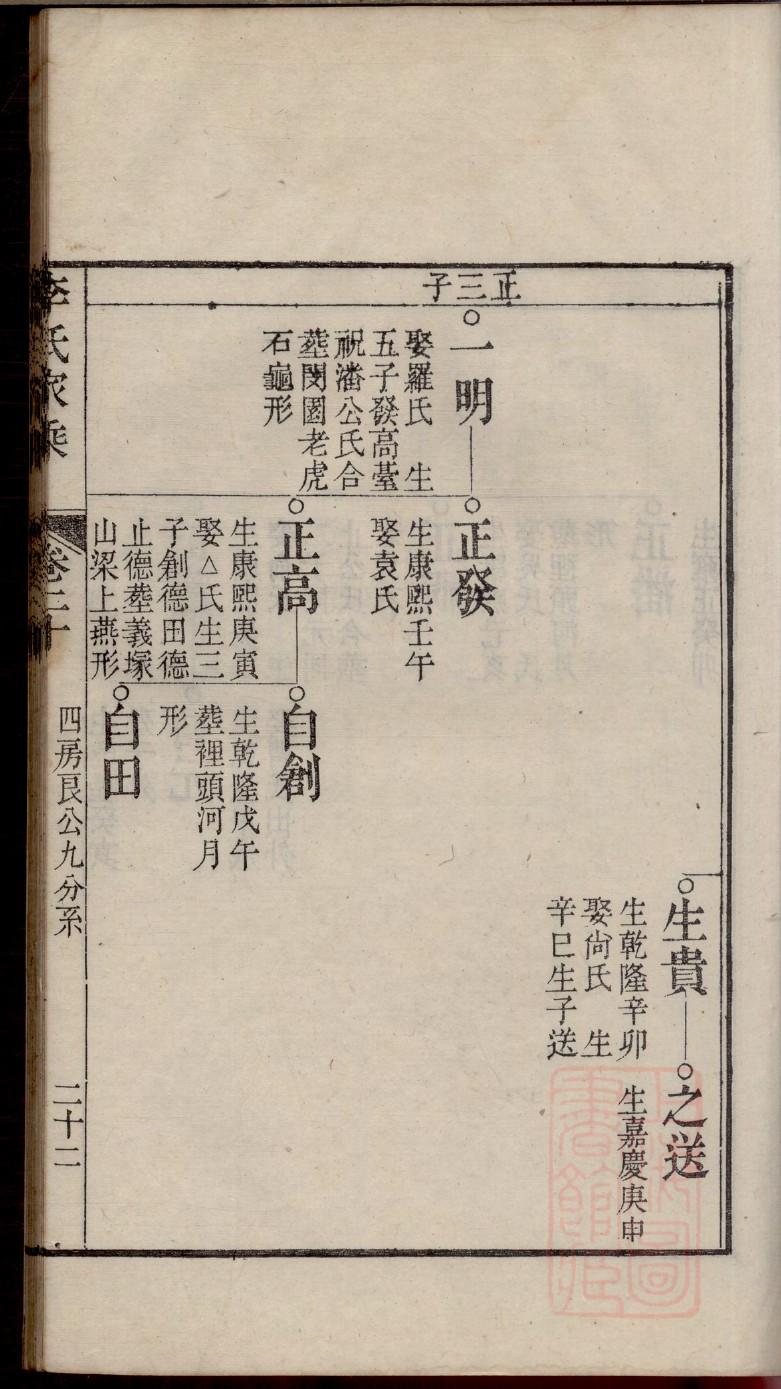 正三子
生貴
生乾隆辛卯
娶尙氏　生
辛巳生子送
之送
生嘉慶庚申
一明
娶羅氏　生
五子發高臺
祝潘公氏合
塟閔園老虎
石龜形
正發
生康熙壬午
娶袁氏
正高
生康熙庚寅
娶△氏生三
子創德田德
止德塟義塚
山梁上燕形
自創
生乾隆戊午
塟裡頭河月
形
自田
李氏家乘
卷二十
四房艮公九分系
二十二